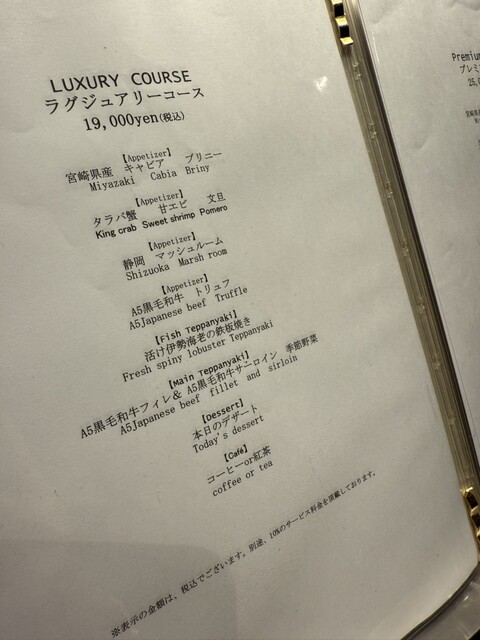 LUXURY COURSE
ラグジュアリーコース
19,000yen(税込)
【Appetizer】
宮崎県産 キャビア ブリニー
Miyazaki Cabia Briny
【Appetizer】
タラバ蟹 甘エビ 文旦
King crab Sweet shrimp Pomero
【Appetizer】
静岡 マッシュルーム
Shizuoka Marsh room
【Appetizer】
A5黒毛和牛 トリュフ
A5Japanese beef Truffle
【Fish Teppanyaki】
活け伊勢海老の鉄板焼き
Fresh spiny lobuster Teppanyaki
【Main Teppanyaki】
A5黒毛和牛フィレ& A5黒毛和牛サーロイン 季節野菜
A5Japanese beef fillet and sirloin
【Dessert】
本日のデザート
Today's dessert
【Café】
コーヒーor紅茶
coffee or tea
※表示の金額は、税込でございます。別途、10%のサービス料金を頂戴しております。
Premium
プレミ
25,0
宮崎県産